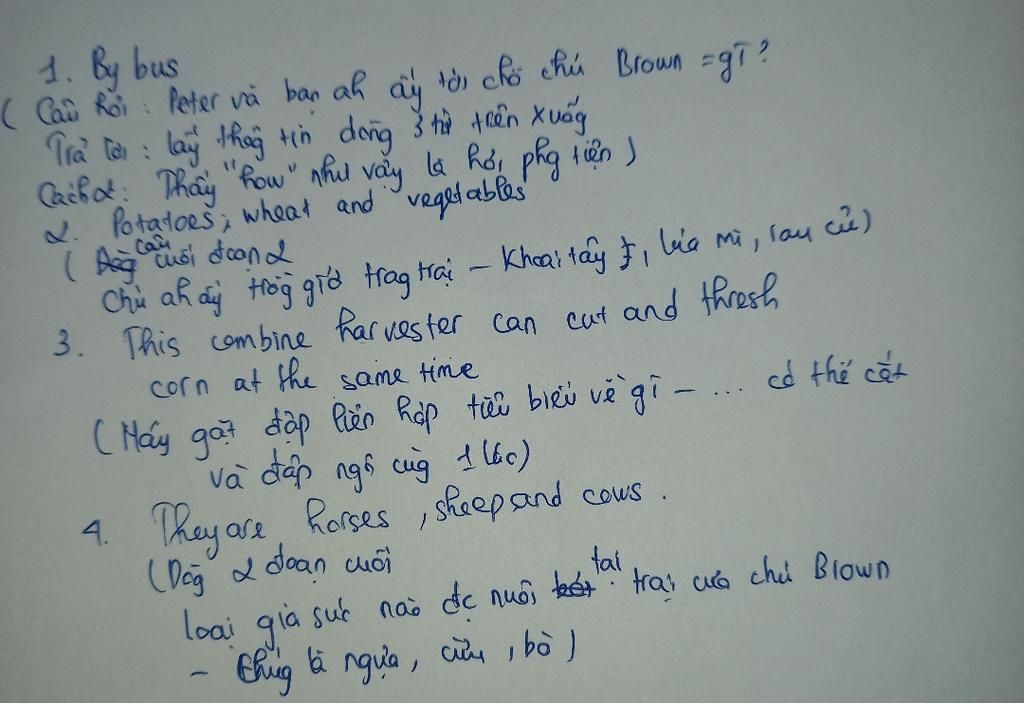 1. By bus
( Câu hỏi : Peter và bạn ah ấy tới chỗ chú Brown = gì ?
Trả lời : lấy thôg tin dòng 3 từ trên xuống
Cách 2 : Thấy "how" như vậy là hỏi phg tiện )
2. Potatoes, wheat and vegetables
( câu cuối đoạn 2
Chú ah ấy trồg gì ở trag trại - Khoai tây, lúa mì, rau củ )
3. This combine harvester can cut and thresh
corn at the same time
( Máy gặt đập liên hợp tiêu biểu về gì - ... có thể cắt
và đập ngô cùg 1 lúc )
4. They are horses , sheep and cows .
( Dòg 2 đoạn cuối
loại gia súc nào đc nuôi tại trại của chú Brown
- Chúg là ngựa , cừu , bò )